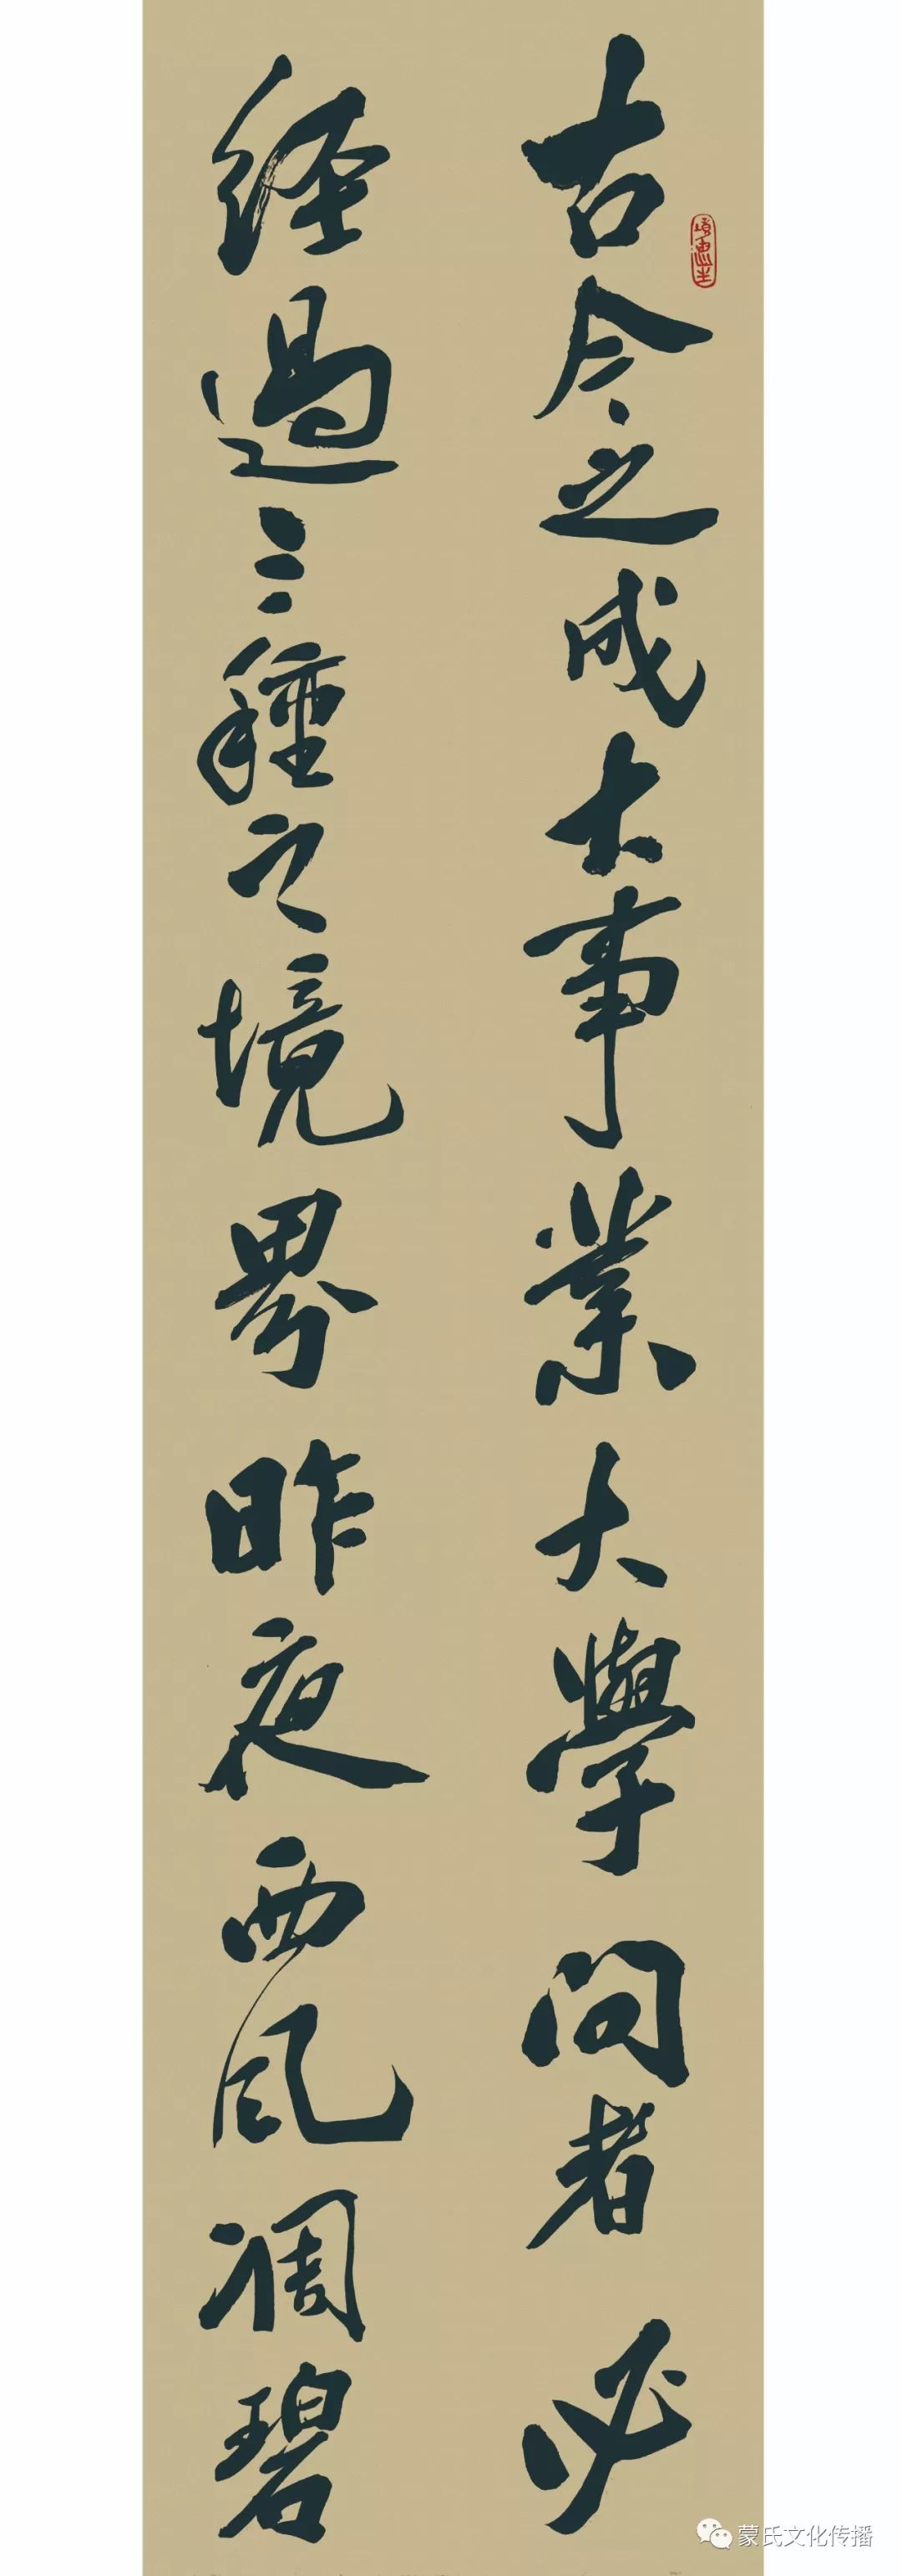 古今之成大事業大學问者必
经過三種之境界昨夜西风凋碧
蒙氏文化传播